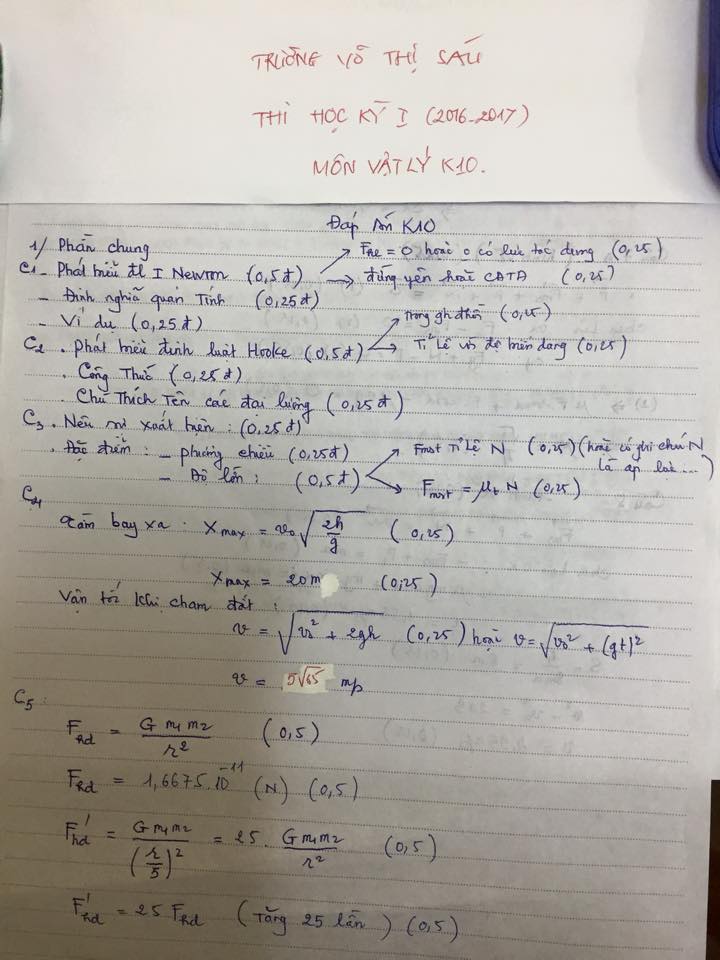 TRƯỜNG VÕ THỊ SÁU
THI HỌC KỲ I (2016-2017)
MÔN VẬT LÝ K10.
Đáp Án K10
1/ Phần chung
→ Fhl = 0 hoặc 0 có lực tác dụng (0,25)
C1 - Phát biểu đl I Newton (0,5đ) → đứng yên hoặc CĐTĐ (0,25)
- Định nghĩa quán Tính (0,25đ)
- Ví dụ (0,25đ)
→ Trong gh đhồi (0,25)
C2 . Phát biểu định luật Hooke (0,5đ) → Tỉ lệ với độ biến dạng (0,25)
. Công Thức (0,25đ)
. Chú Thích Tên các đại lượng (0,25đ)
C3 . Nêu sự xuất hiện : (0,25đ)
. Đặc điểm : - phương chiều (0,25đ) → Fmst Tỉ lệ N (0,25) (hoặc có ghi chú N là áp lực ...)
- Độ lớn : (0,5đ) → Fmst = μt N (0,25)
C4
Tầm bay xa : Xmax = v0 √(2h/g) (0,25)
Xmax = 20 m (0,25)
Vận tốc khi chạm đất :
v = √(v0² + 2gh) (0,25) hoặc v = √(v0² + (gt)²)
v = 5√65 m/s
C5 :
Fhd = G m1 m2 / r² (0,5)
Fhd = 1,6675.10⁻¹¹ (N) (0,5)
F'hd = G m1 m2 / (r/5)² = 25 . G m1 m2 / r² (0,5)
F'hd = 25 Fhd (Tăng 25 lần) (0,5)